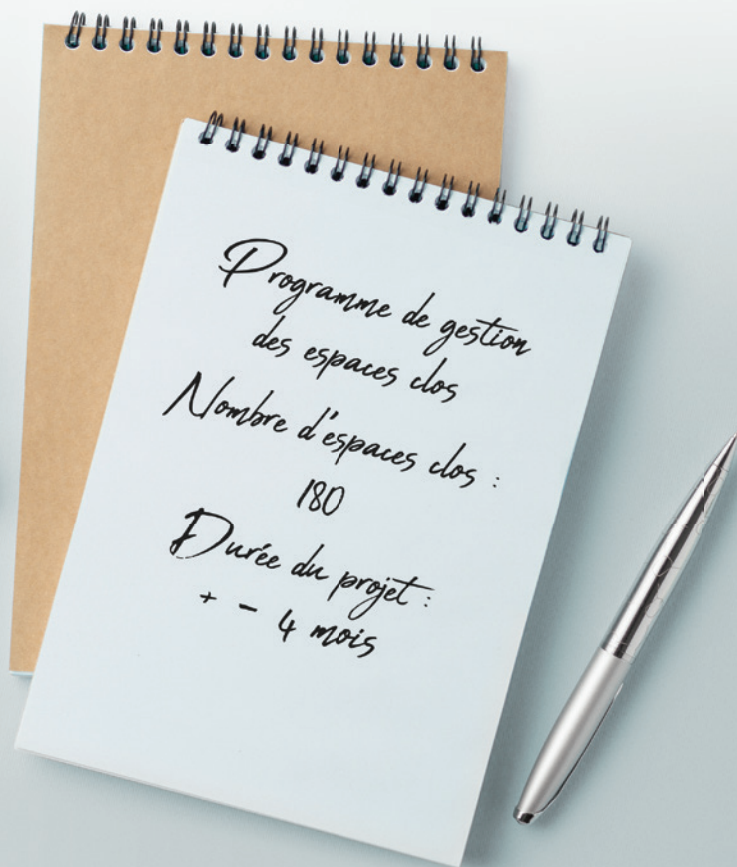 Programme de gestion
des espaces clos
Nombre d'espaces clos :
180
Durée du projet :
+ - 4 mois